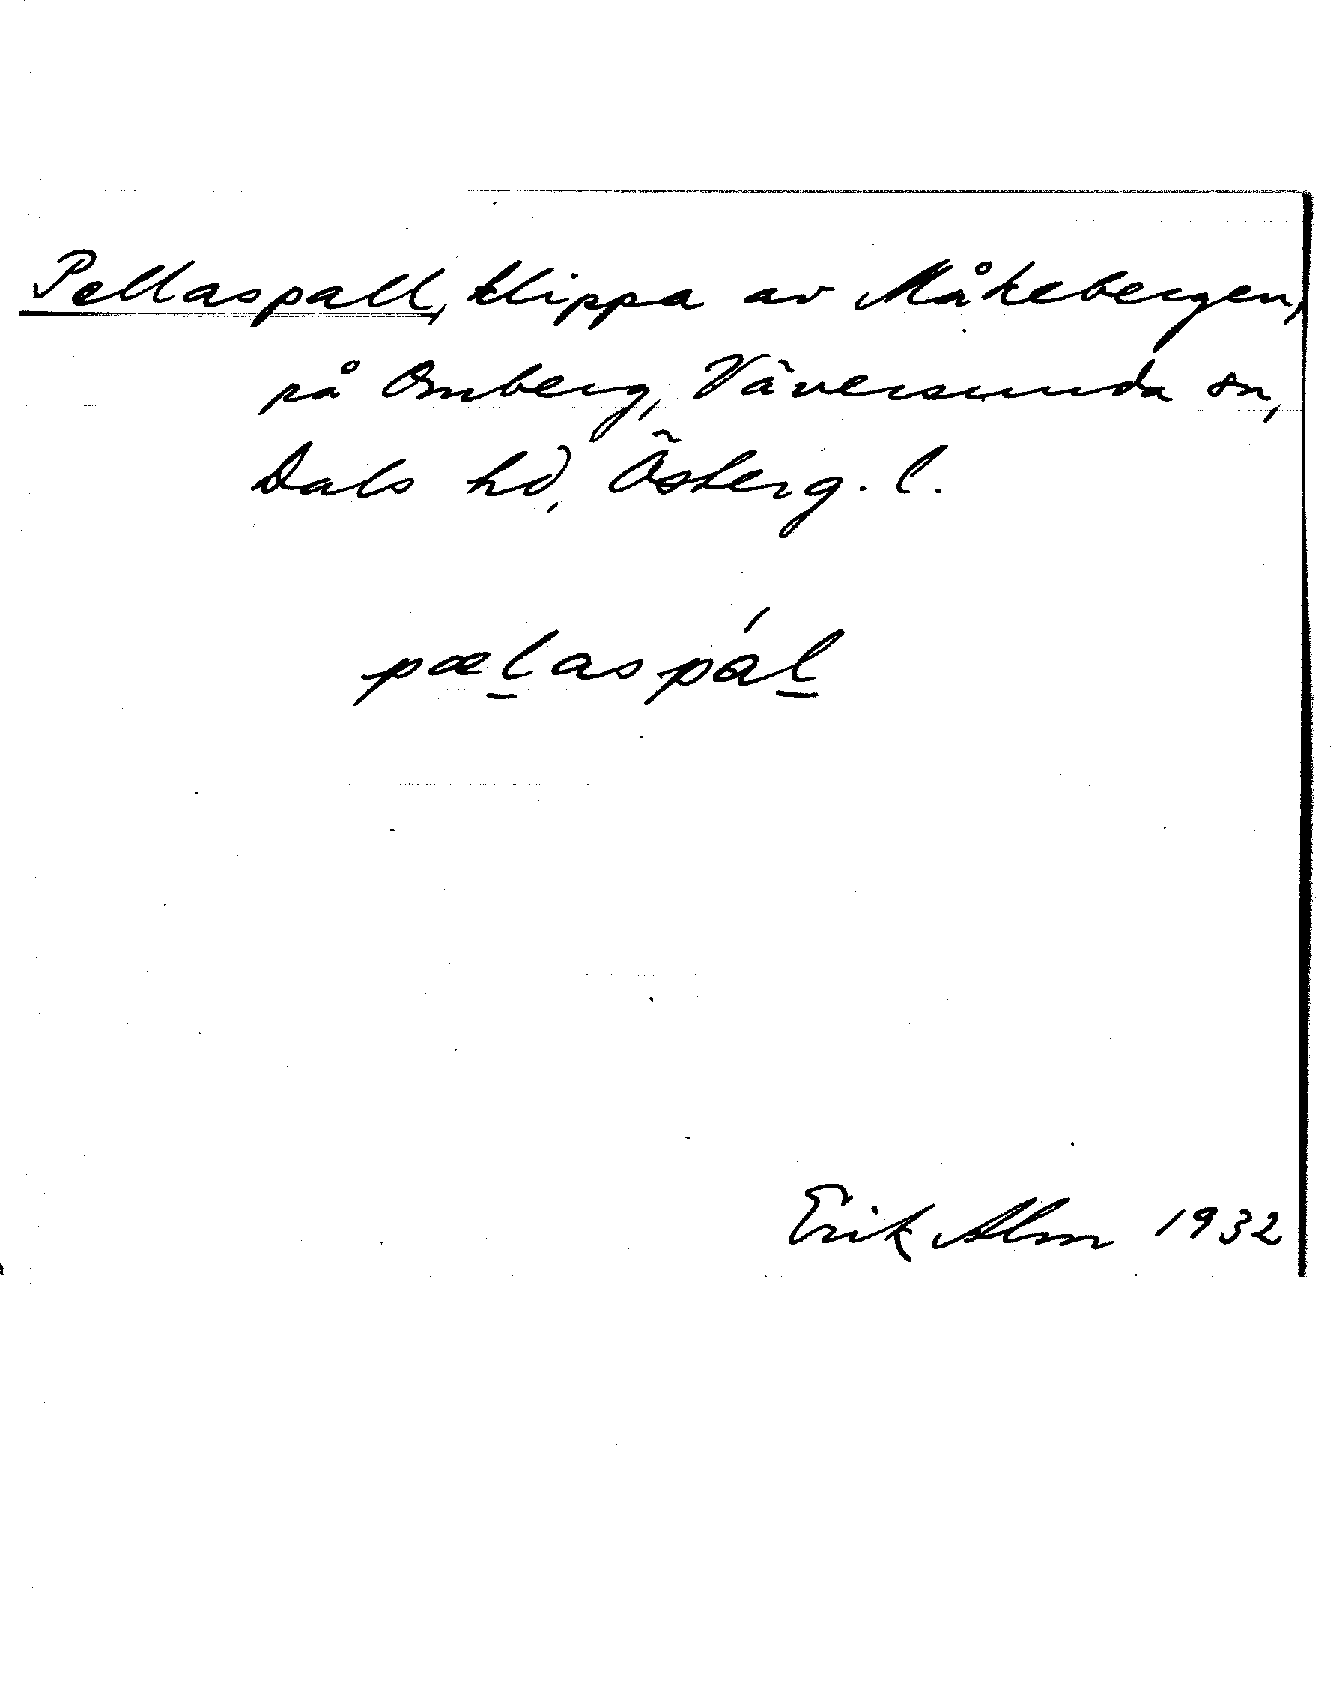 Pellaspall, klippa av Måkebergen,
på Omberg, Väversunda sn,
Dals hd, Österg. l.
pælaspál
Erik Alm 1932